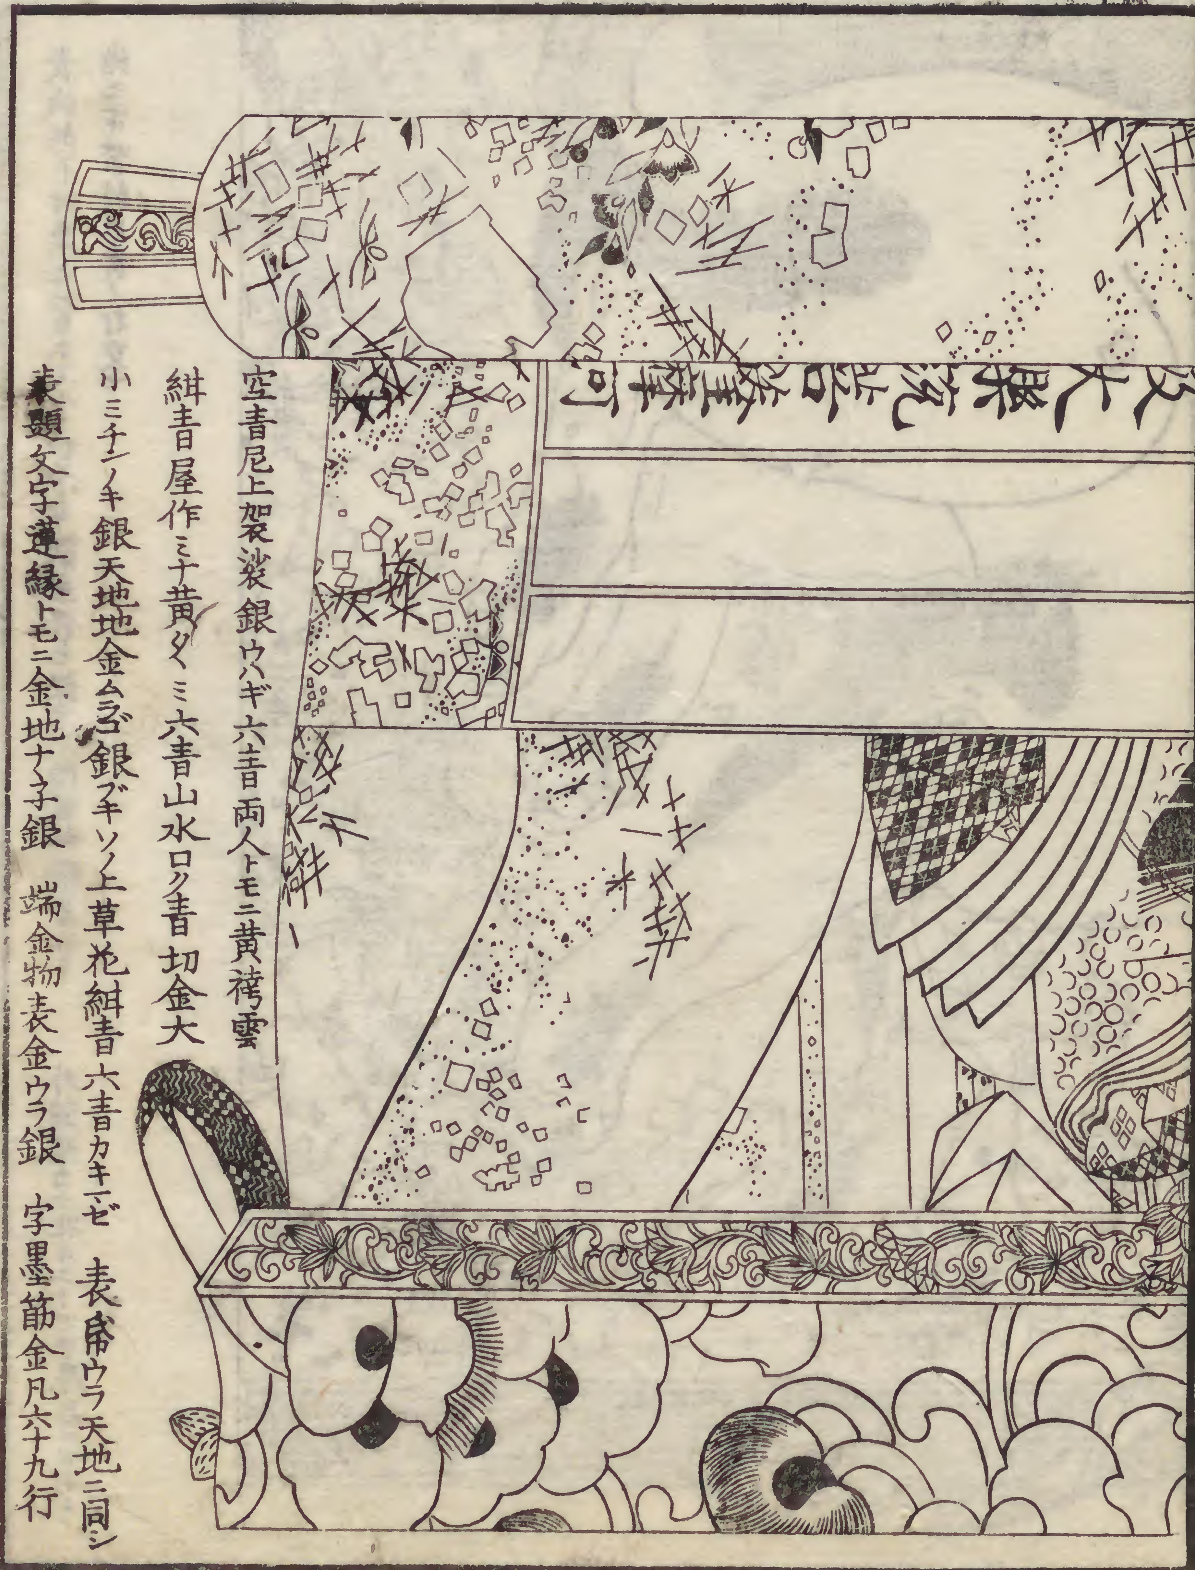 空青尼上袈裟銀ウハギ六青両人トモニ黄袴雲
紺青屋作ミナ黄タヽミ六青山水ロク青切金大
小ミチンノキ銀天地地金ムラゴ銀ブキソノ上草花紺青六青カキマゼ 表帋ウラ天地ニ同シ
表題文字蓮縁トモニ金地ナヽ子銀 端金物表金ウラ銀 字墨筋金凡六十九行